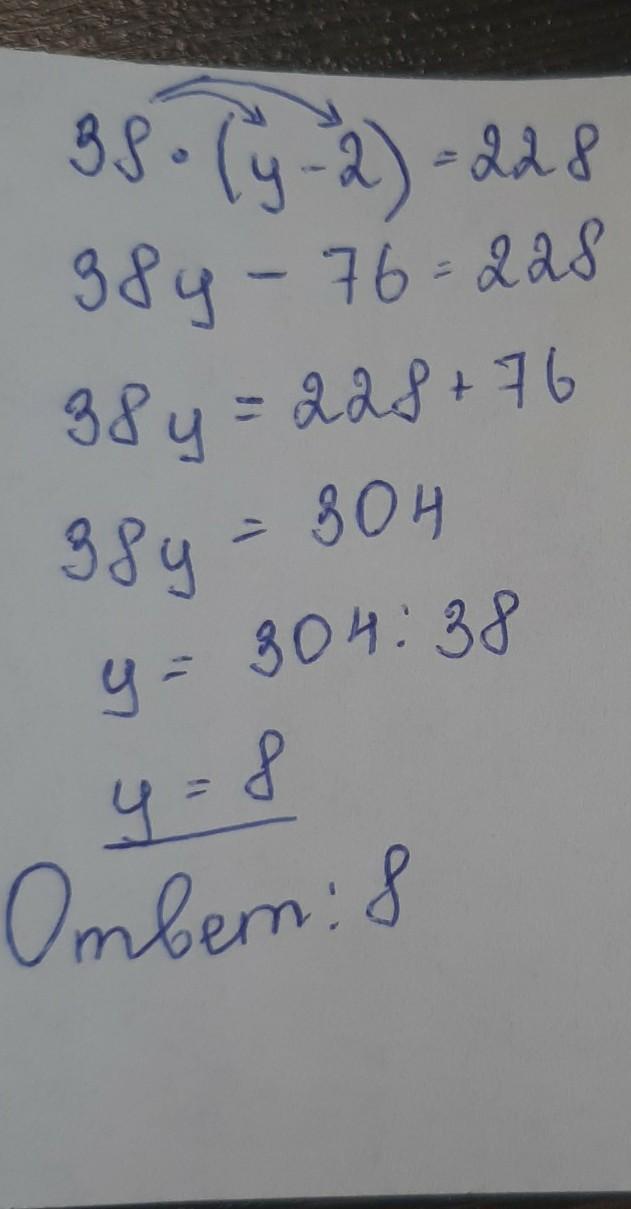 38·(y-2)=228
38y - 76=228
38y = 228+76
38y = 304
y = 304:38
y = 8
Ответ: 8